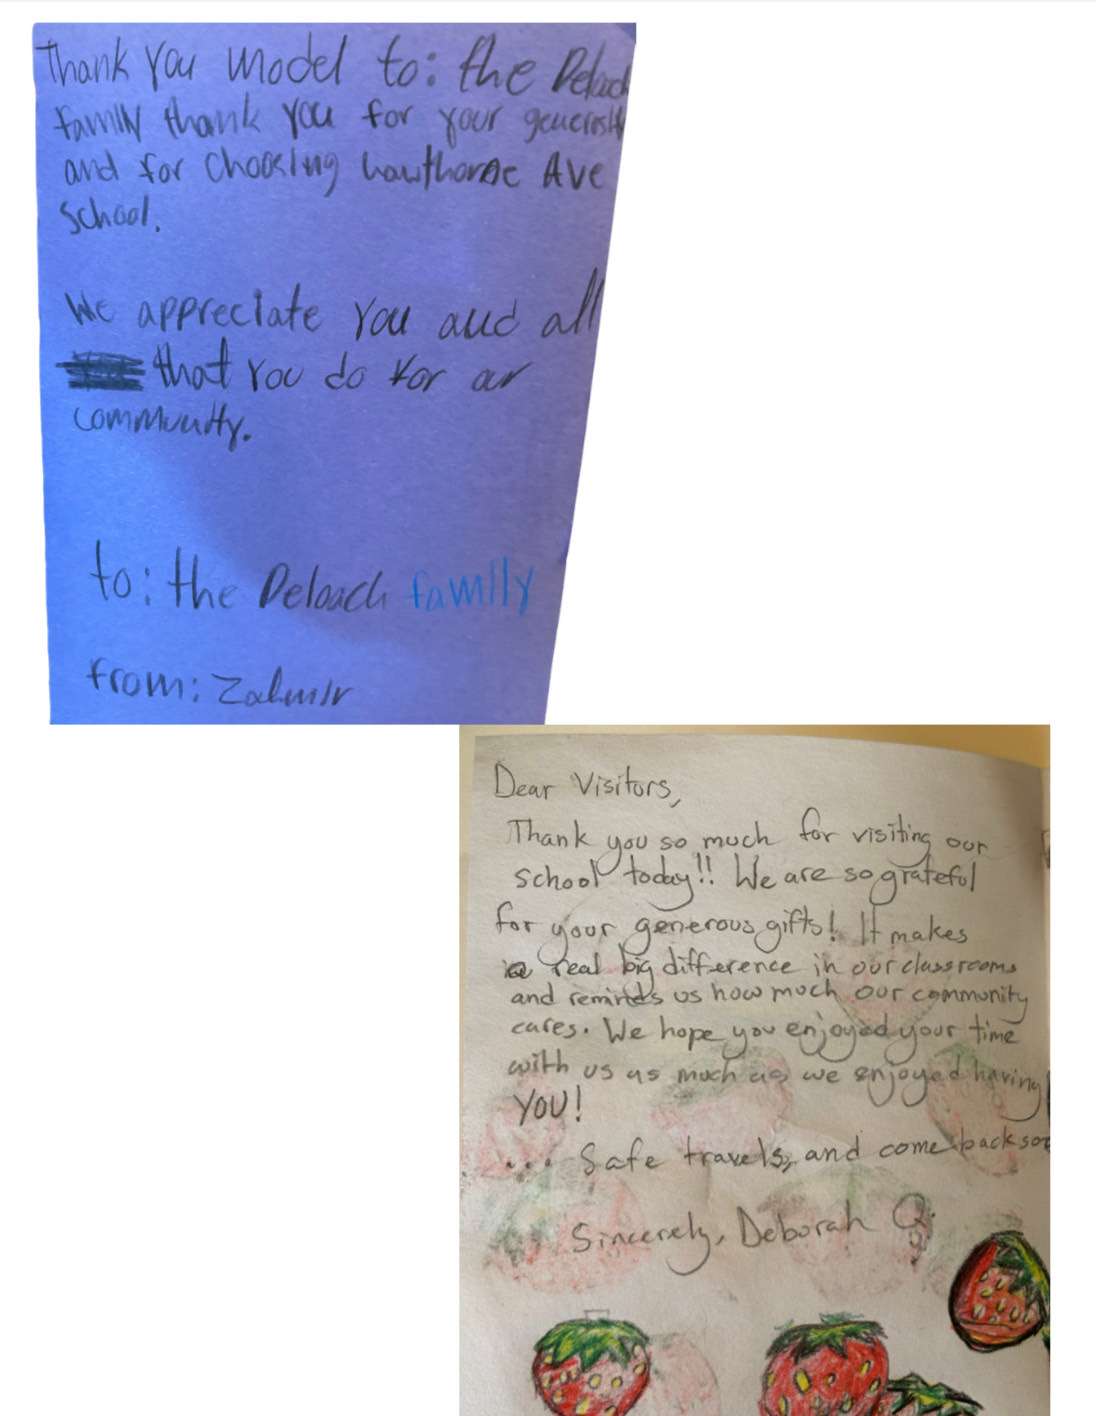 Thank you model to: the Deloach
family thank you for your generosity
and for choosing hawthorne Ave
School.
We appreciate you and all
that you do for our
community.
to: the Deloach family
from: Zahmir
Dear Visitors,
Thank you so much for visiting our
school today!! We are so grateful
for your generous gifts! It makes
a real big difference in our classrooms
and reminds us how much our community
cares. We hope you enjoyed your time
with us as much as we enjoyed having
YOU!
... Safe travels, and come back soo
Sincerely, Deborah Q.